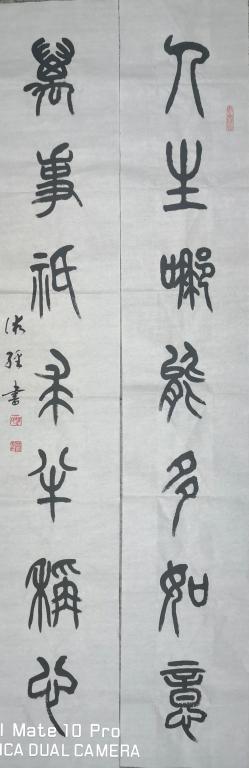 人生哪能多如意
萬事祇求半稱心
書
I Mate 10 Pro
ICA DUAL CAMERA